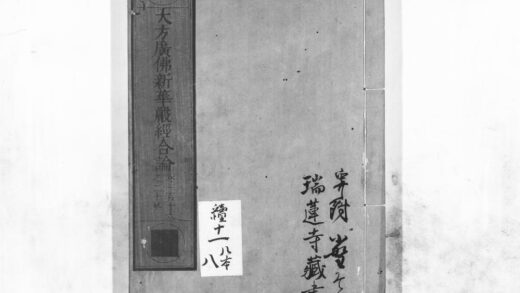 大方廣佛新華嚴經合論
寄附
瑞蓮寺藏書
續十一
八本
八